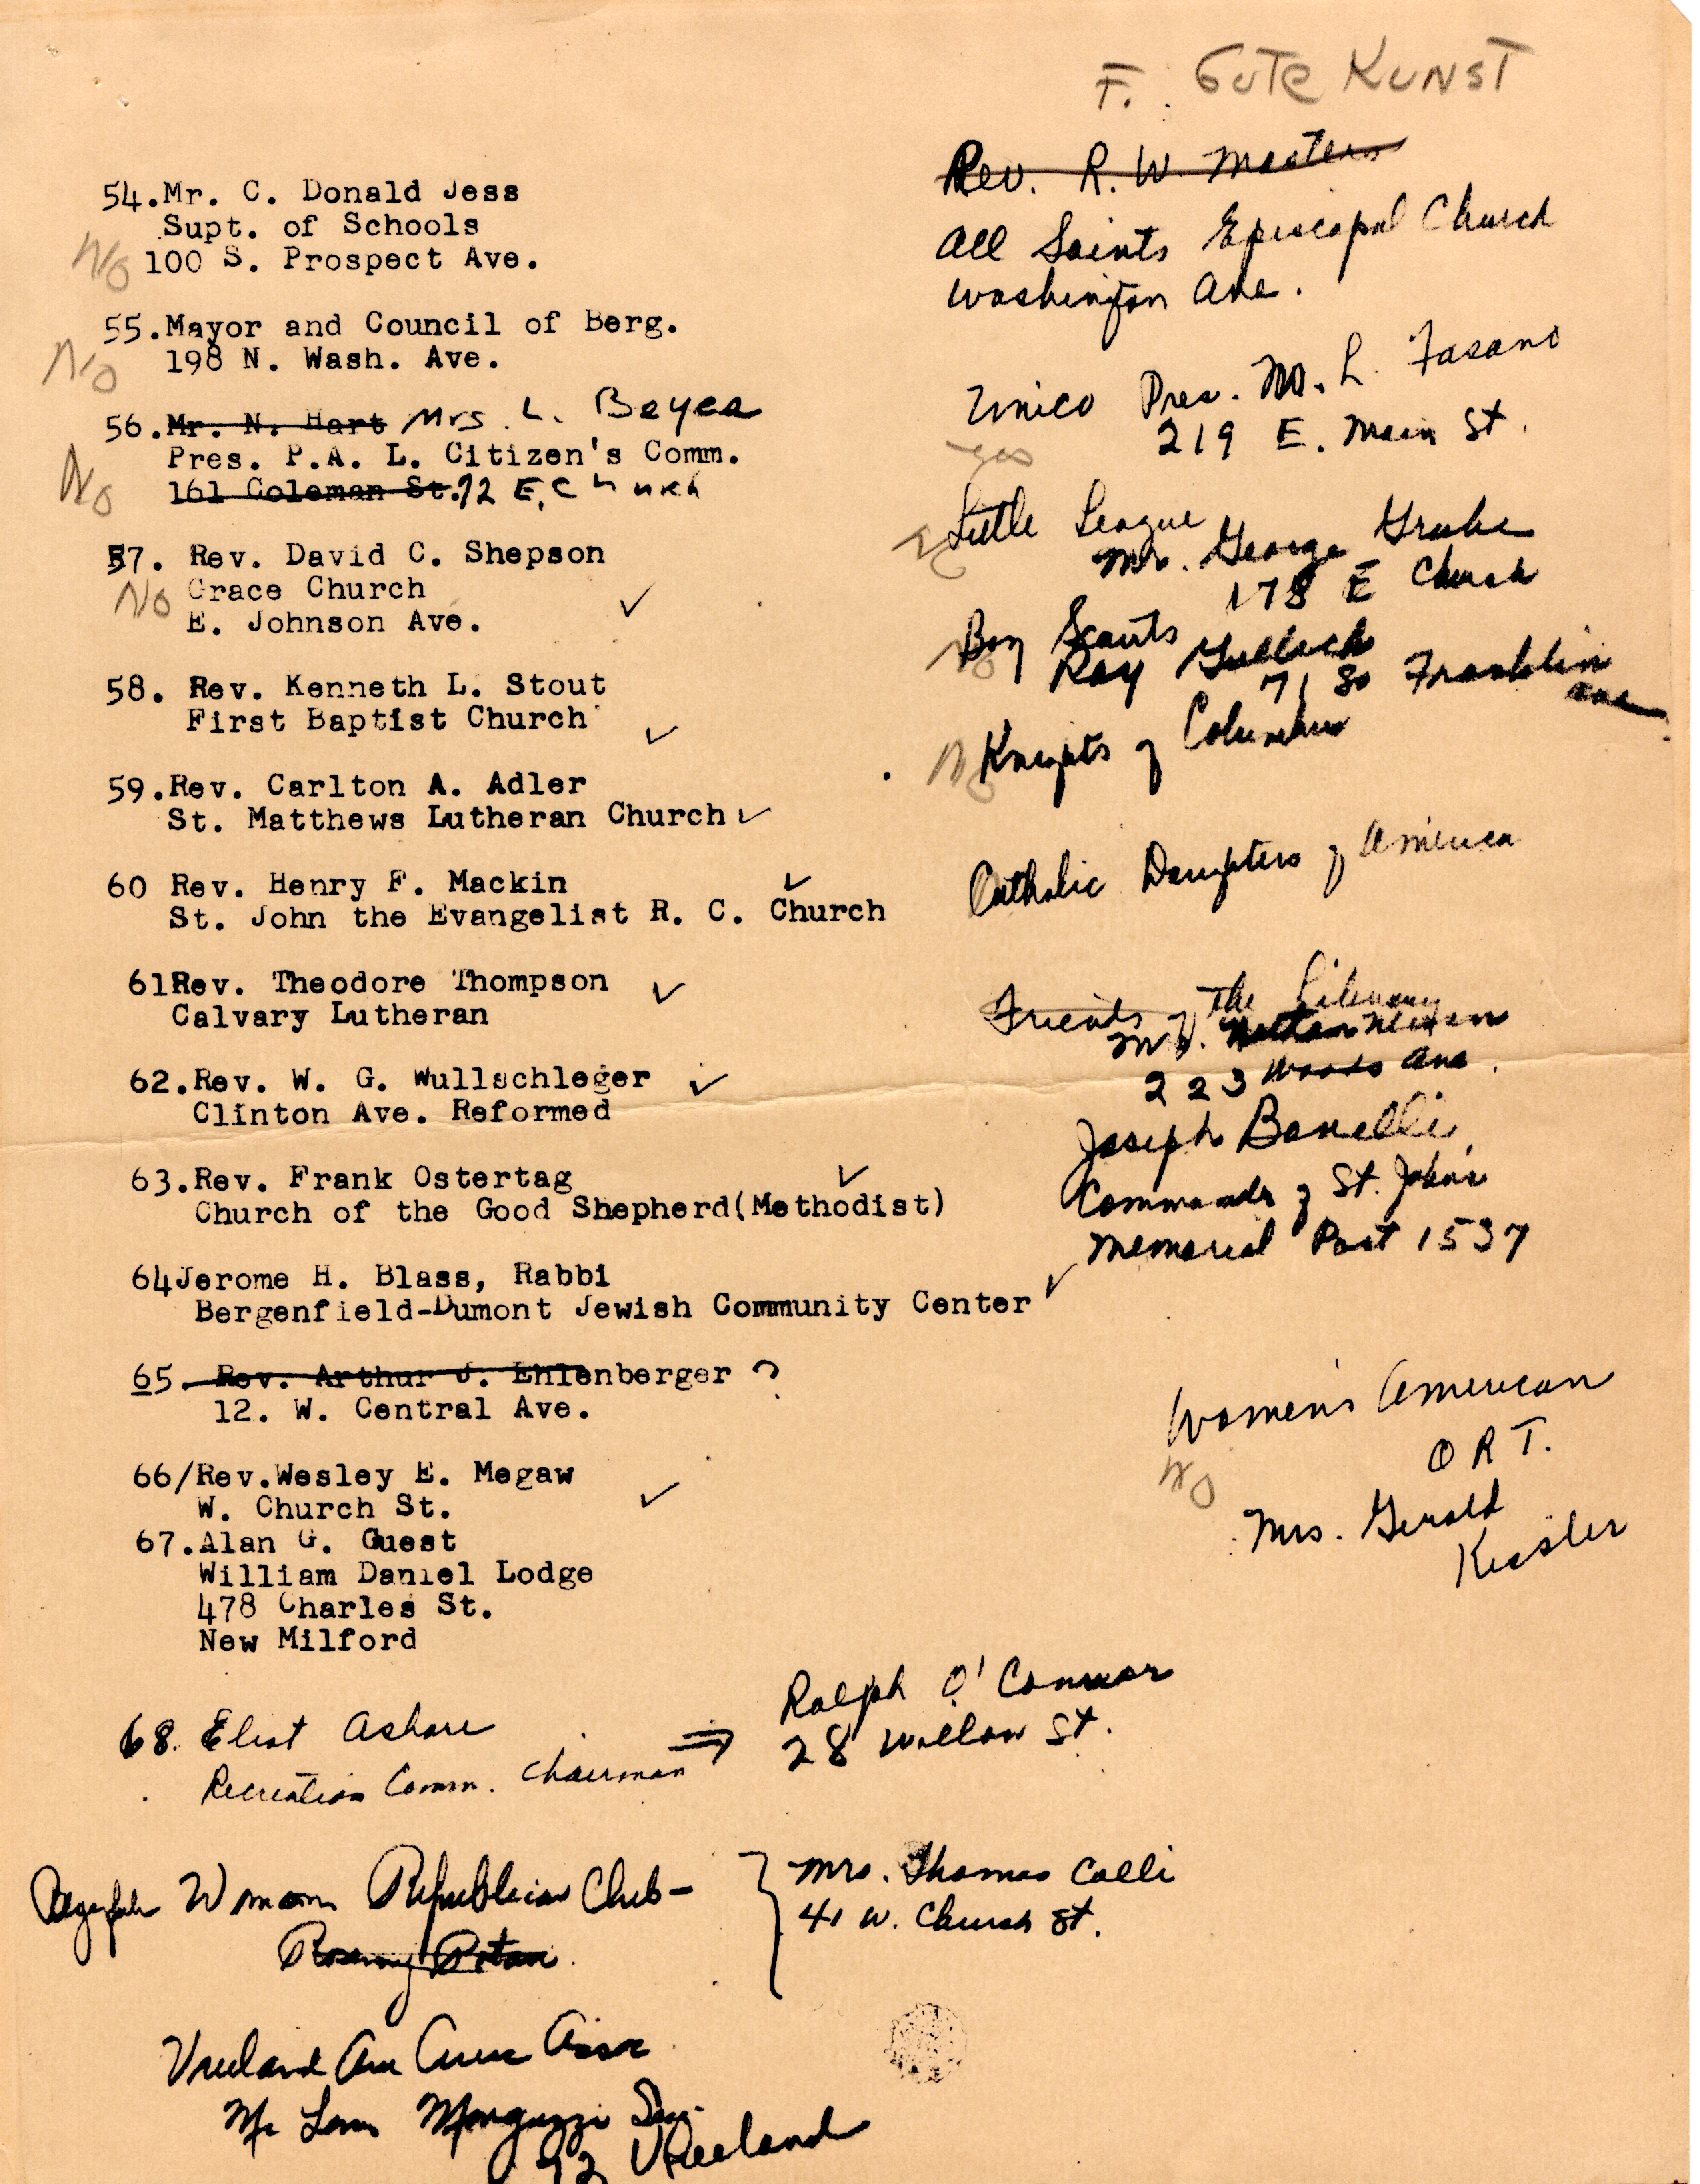 F. GUTE KUNST
54.Mr. C. Donald Jess
Supt. of Schools
No 100 S. Prospect Ave.
55.Mayor and Council of Berg.
No 198 N. Wash. Ave.
56.Mr. N. Hart Mrs. L. Beyea
Pres. P.A. L. Citizen's Comm.
No 161 Coleman St. 72 E. Church
57. Rev. David C. Shepson
No Grace Church
E. Johnson Ave. ✓
58. Rev. Kenneth L. Stout
First Baptist Church ✓
59.Rev. Carlton A. Adler
St. Matthews Lutheran Church ✓
60 Rev. Henry F. Mackin ✓
St. John the Evangelist R. C. Church
61Rev. Theodore Thompson ✓
Calvary Lutheran
62.Rev. W. G. Wullschleger ✓
Clinton Ave. Reformed
63.Rev. Frank Ostertag ✓
Church of the Good Shepherd(Methodist)
64Jerome H. Blass, Rabbi
Bergenfield-Dumont Jewish Community Center ✓
65. Rev. Arthur J. Ehlenberger ?
12. W. Central Ave.
66/Rev.Wesley E. Megaw
W. Church St. ✓
67.Alan G. Guest
William Daniel Lodge
478 Charles St.
New Milford
68. Eliot
Recreation Comm. Chairman ⇒
Ralph O'Connor
28 Willow St.
Womans Republican Club -
Rosemary
Mrs. Thomas Colli
41 W. Church St.
Vreeland Ave Civic Assoc
Mr Louis
92 Vreeland
Rev. R. W. Masters
All Saints Episcopal Church
Washington Ave.
Unico Pres. M. L. Fasano
219 E. Main St.
yes
No Little League
Mr. George Grube
178 E Church
No Boy Scouts
Ray Gullich
71 So Franklin
Ave
No Knights of Columbus
Catholic Daughters of America
Friends of The Library
Mr. Nathan
223 Woods Ave.
Joseph Bonelli
Commander of St. John's
Memorial Post 1537
Women's American
O R T.
No
Mrs. Gerald
Kessler